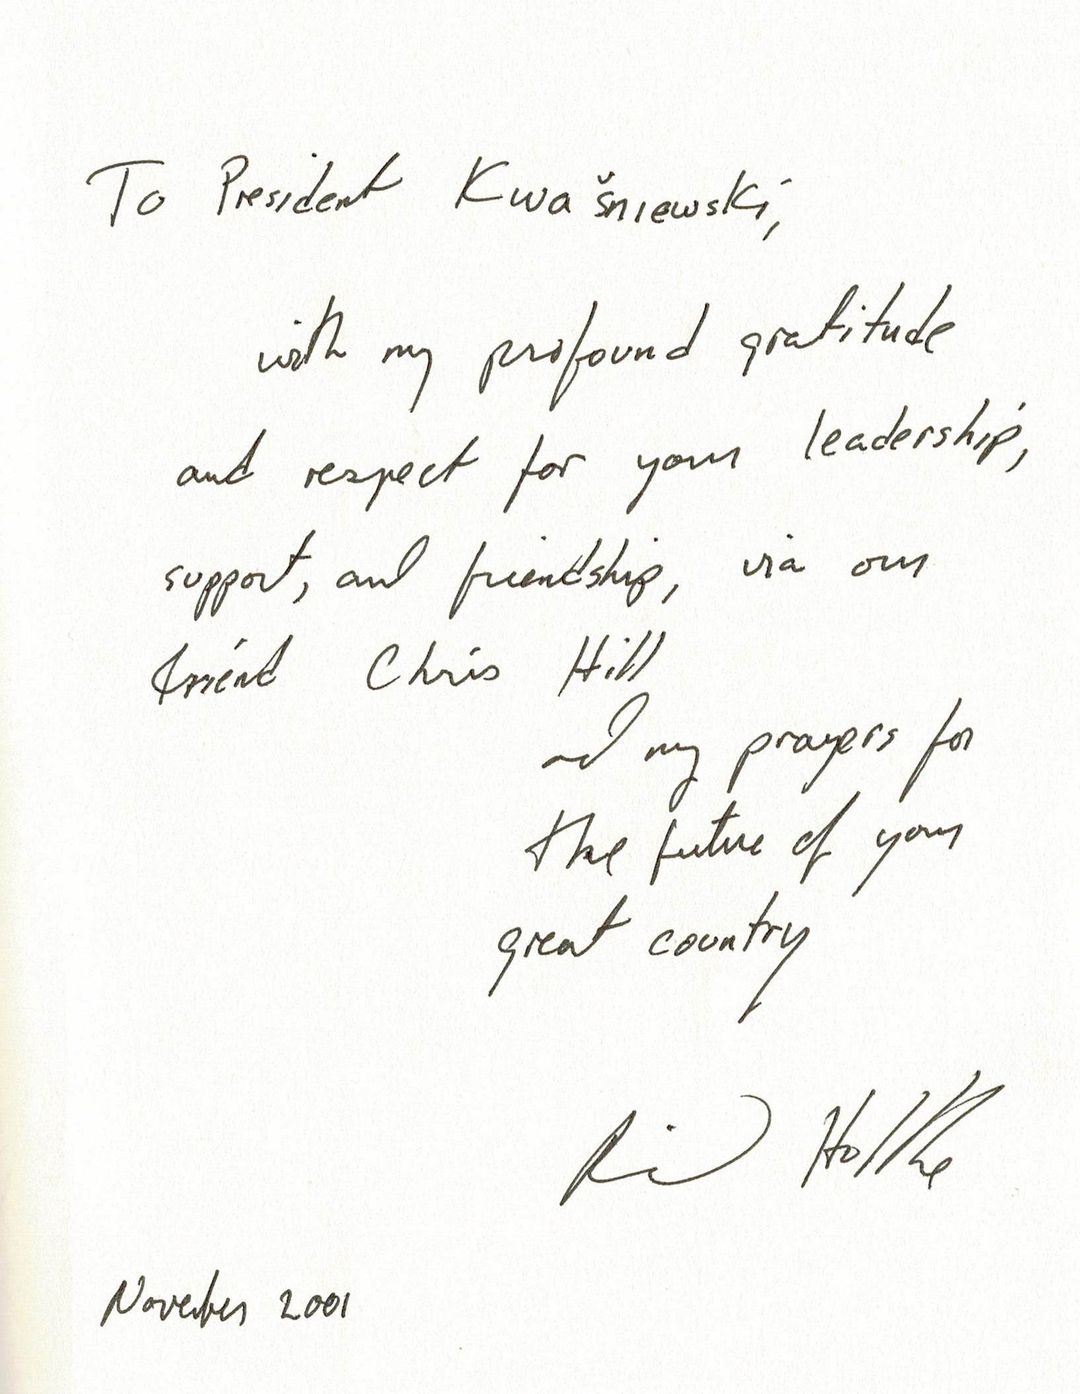 To President Kwašniewski,
with my profound gratitude
and respect for your leadership,
support, and friendship, via our
friend Chris Hill
and my prayers for
the future of your
great country
November 2001